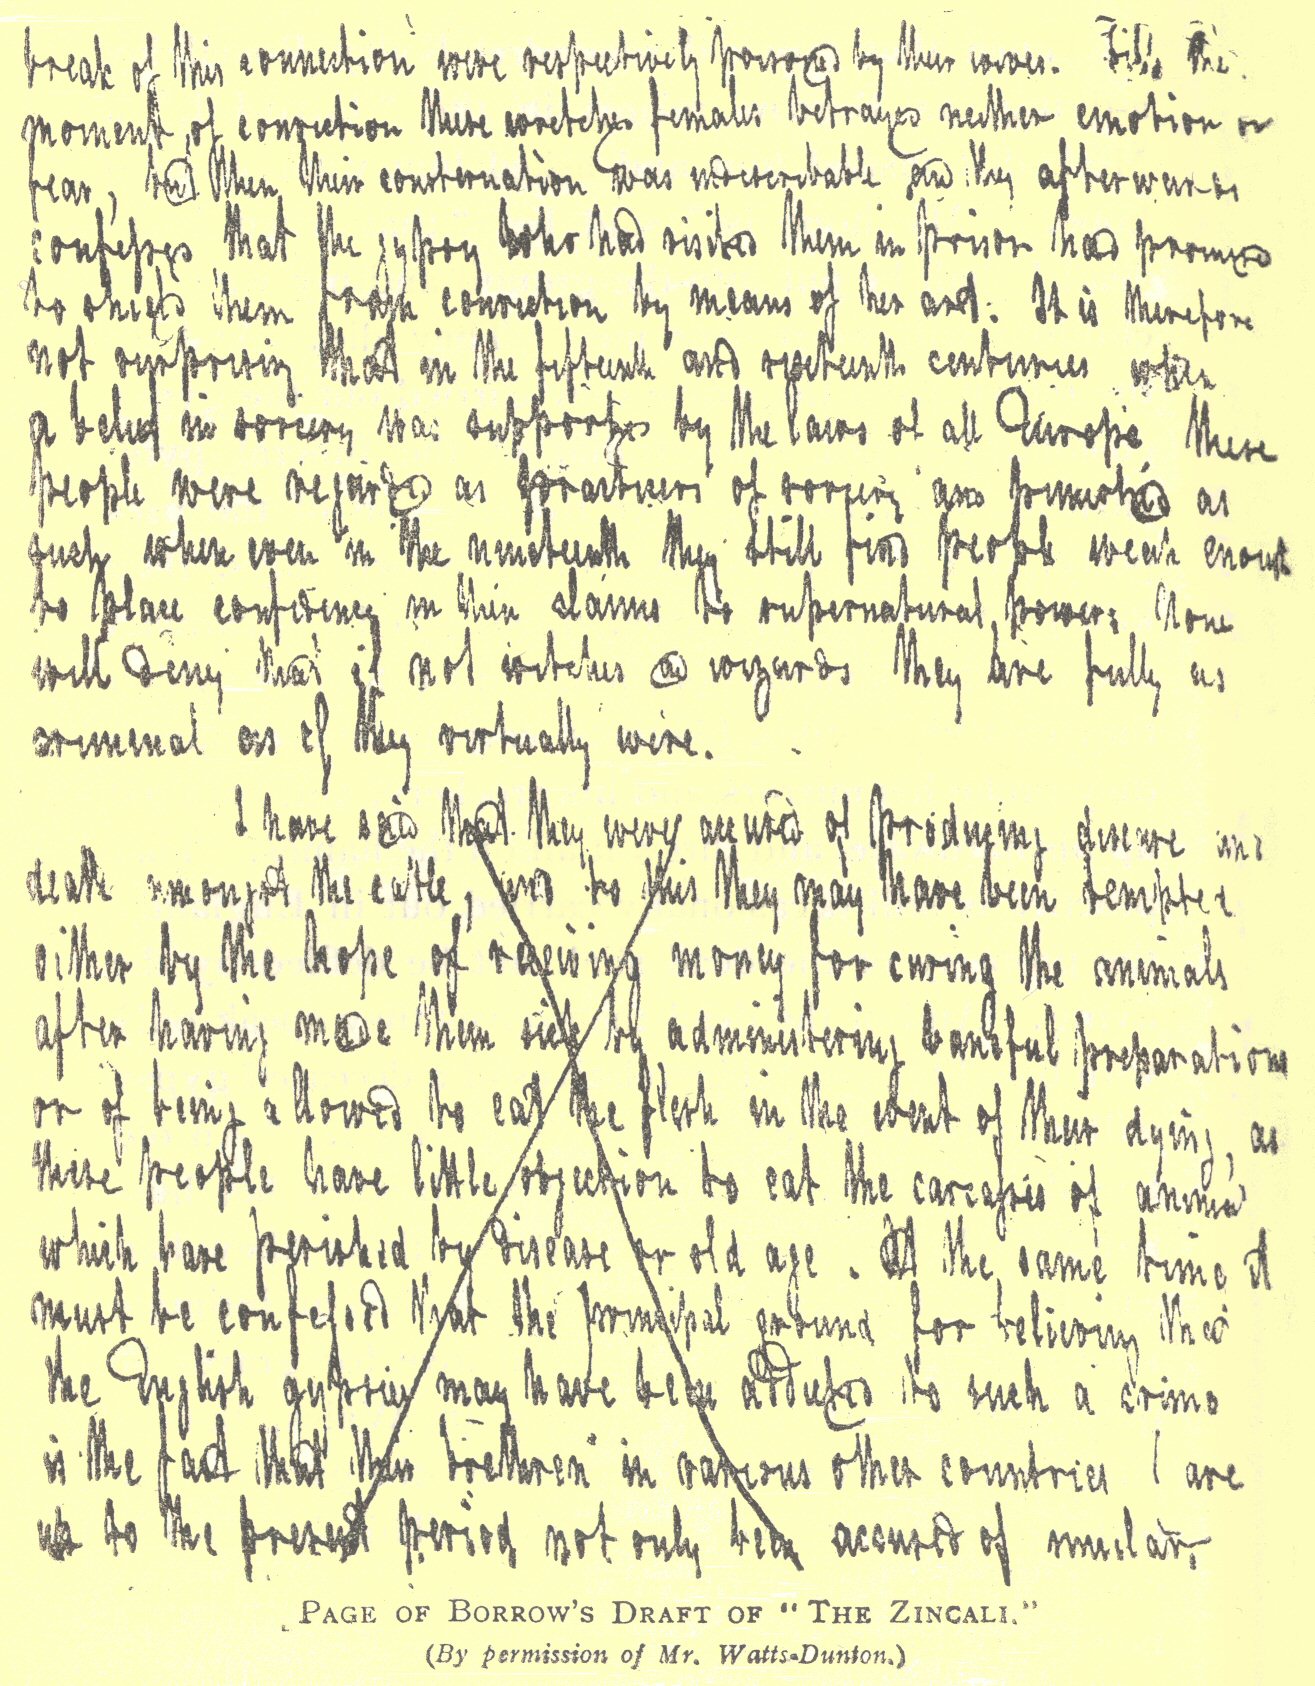 break of this connection were respectively poisoned by their wives. Till the
moment of conviction these wretched females betrayed neither emotion or
fear, but then their consternation was indescribable and they afterwards
confessed that the gypsy who had visited them in prison had promised
to shield them from conviction by means of her art. It is therefore
not surprising that in the fifteenth and sixteenth centuries when
a belief in sorcery was supported by the laws of all Europe these
people were regarded as practicers of sorcery and punished as
such when even in the nineteenth they still find people weak enough
to place confidence in their claims to supernatural power. None
will deny that if not witches and wizards they are fully as
criminal as if they virtually were.
I have said that they were accused of producing disease and
death amongst the cattle, and to this they may have been tempted
either by the hope of receiving money for curing the animals
after having made them sick by administering baneful preparations
or of being allowed to eat the flesh in the event of their dying, as
these people have little objection to eat the carcasses of animals
which have perished by disease or old age. At the same time it
must be confessed that the principal ground for believing that
the English gypsies may have been addicted to such a crime
is the fact that their brethren in various other countries are
up to the present period not only been accused of similar
PAGE OF BORROW'S DRAFT OF "THE ZINCALI."
(By permission of Mr. Watts-Dunton.)